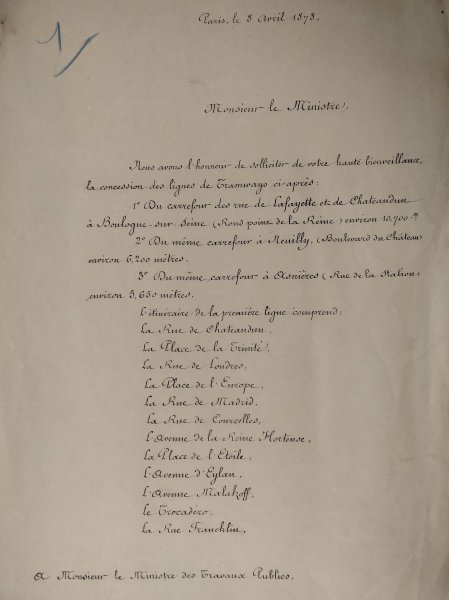 1
Paris, le 8 Avril 1878.
Monsieur le Ministre,
Nous avons l'honneur de solliciter de votre haute bienveillance,
la concession des lignes de Tramways ci-après:
1° Du carrefour des rue de Lafayette et de Chateaudun
à Boulogne-sur-Seine (Rond point de la Reine) environ 10,700 m
2° Du même carrefour à Neuilly, (Boulevard du Château)
environ 6,200 mètres.
3° Du même carrefour à Asnières (Rue de la Station)
environ 5,650 mètres.
L'itinéraire de la première ligne comprend:
La Rue de Chateaudun,
La Place de la Trinité,
La Rue de Londres,
La Place de l'Europe,
La Rue de Madrid,
La Rue de Courcelles,
L'Avenue de la Reine Hortense,
La Place de l'Etoile,
L'Avenue d'Eylau,
L'Avenue Malakoff,
Le Trocadéro,
La Rue Francklin,
A Monsieur le Ministre des Travaux Publics.